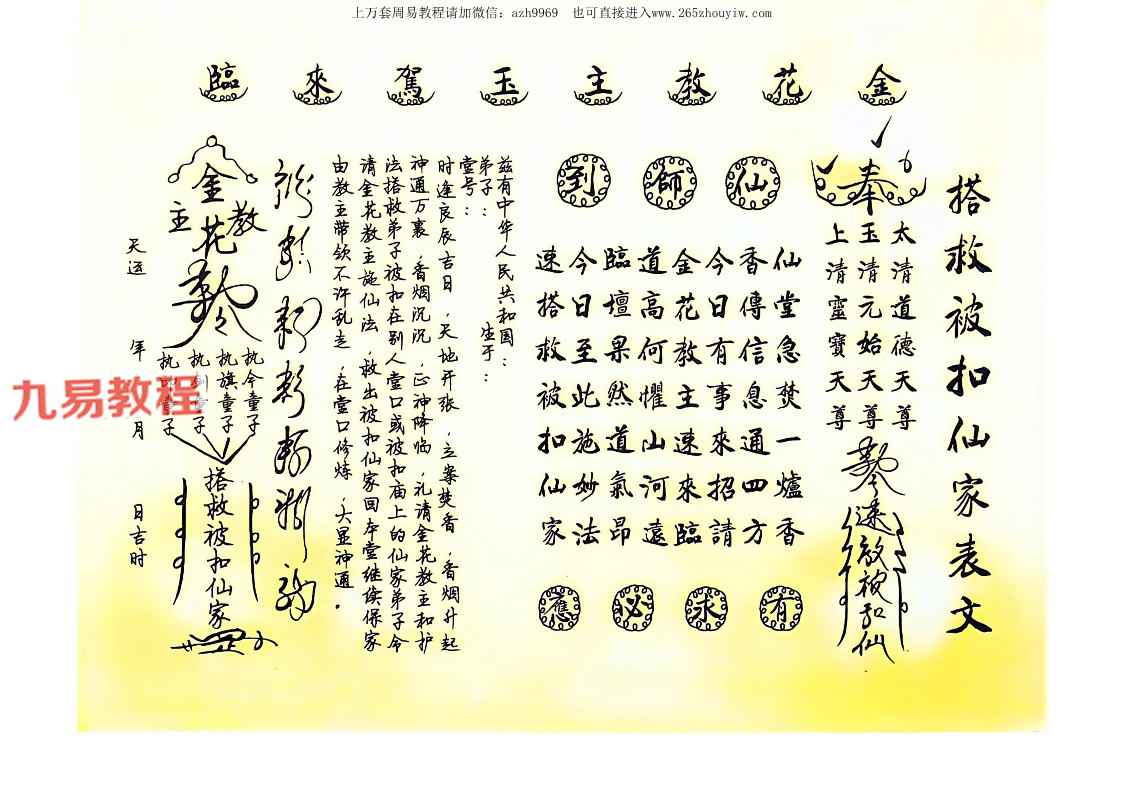 上万套周易教程请加微信：azh9969　也可直接进入www.265zhouyiw.com
金花教主玉駕來臨
搭救被扣仙家表文
奉
太清道德天尊
玉清元始天尊
上清靈寶天尊
速放被扣仙
仙師到
仙堂急焚一爐香
香傳信息通四方
今日有事來招請
金花教主速來臨
道高何懼山河遠
臨壇果然道氣昂
今日至此施妙法
速搭救被扣仙家
有求必應
兹有中华人民共和国：
弟子：　生于：
堂号：
时逢良辰吉日，天地开张，立案焚香，香烟升起
神通万裏，香烟沉沉，正神降临，礼请金花教主和护
法搭救弟子被扣在别人堂口或被扣庙上的仙家弟子今
请金花教主施仙法，救出被扣仙家回本堂继续保家
由教主带领不许乱走，在堂口修炼，大显神通。
金花教主
执令童子
执旗童子
执剑童子
执印童子
搭救被扣仙家
天运　年　月　日吉时
九易教程